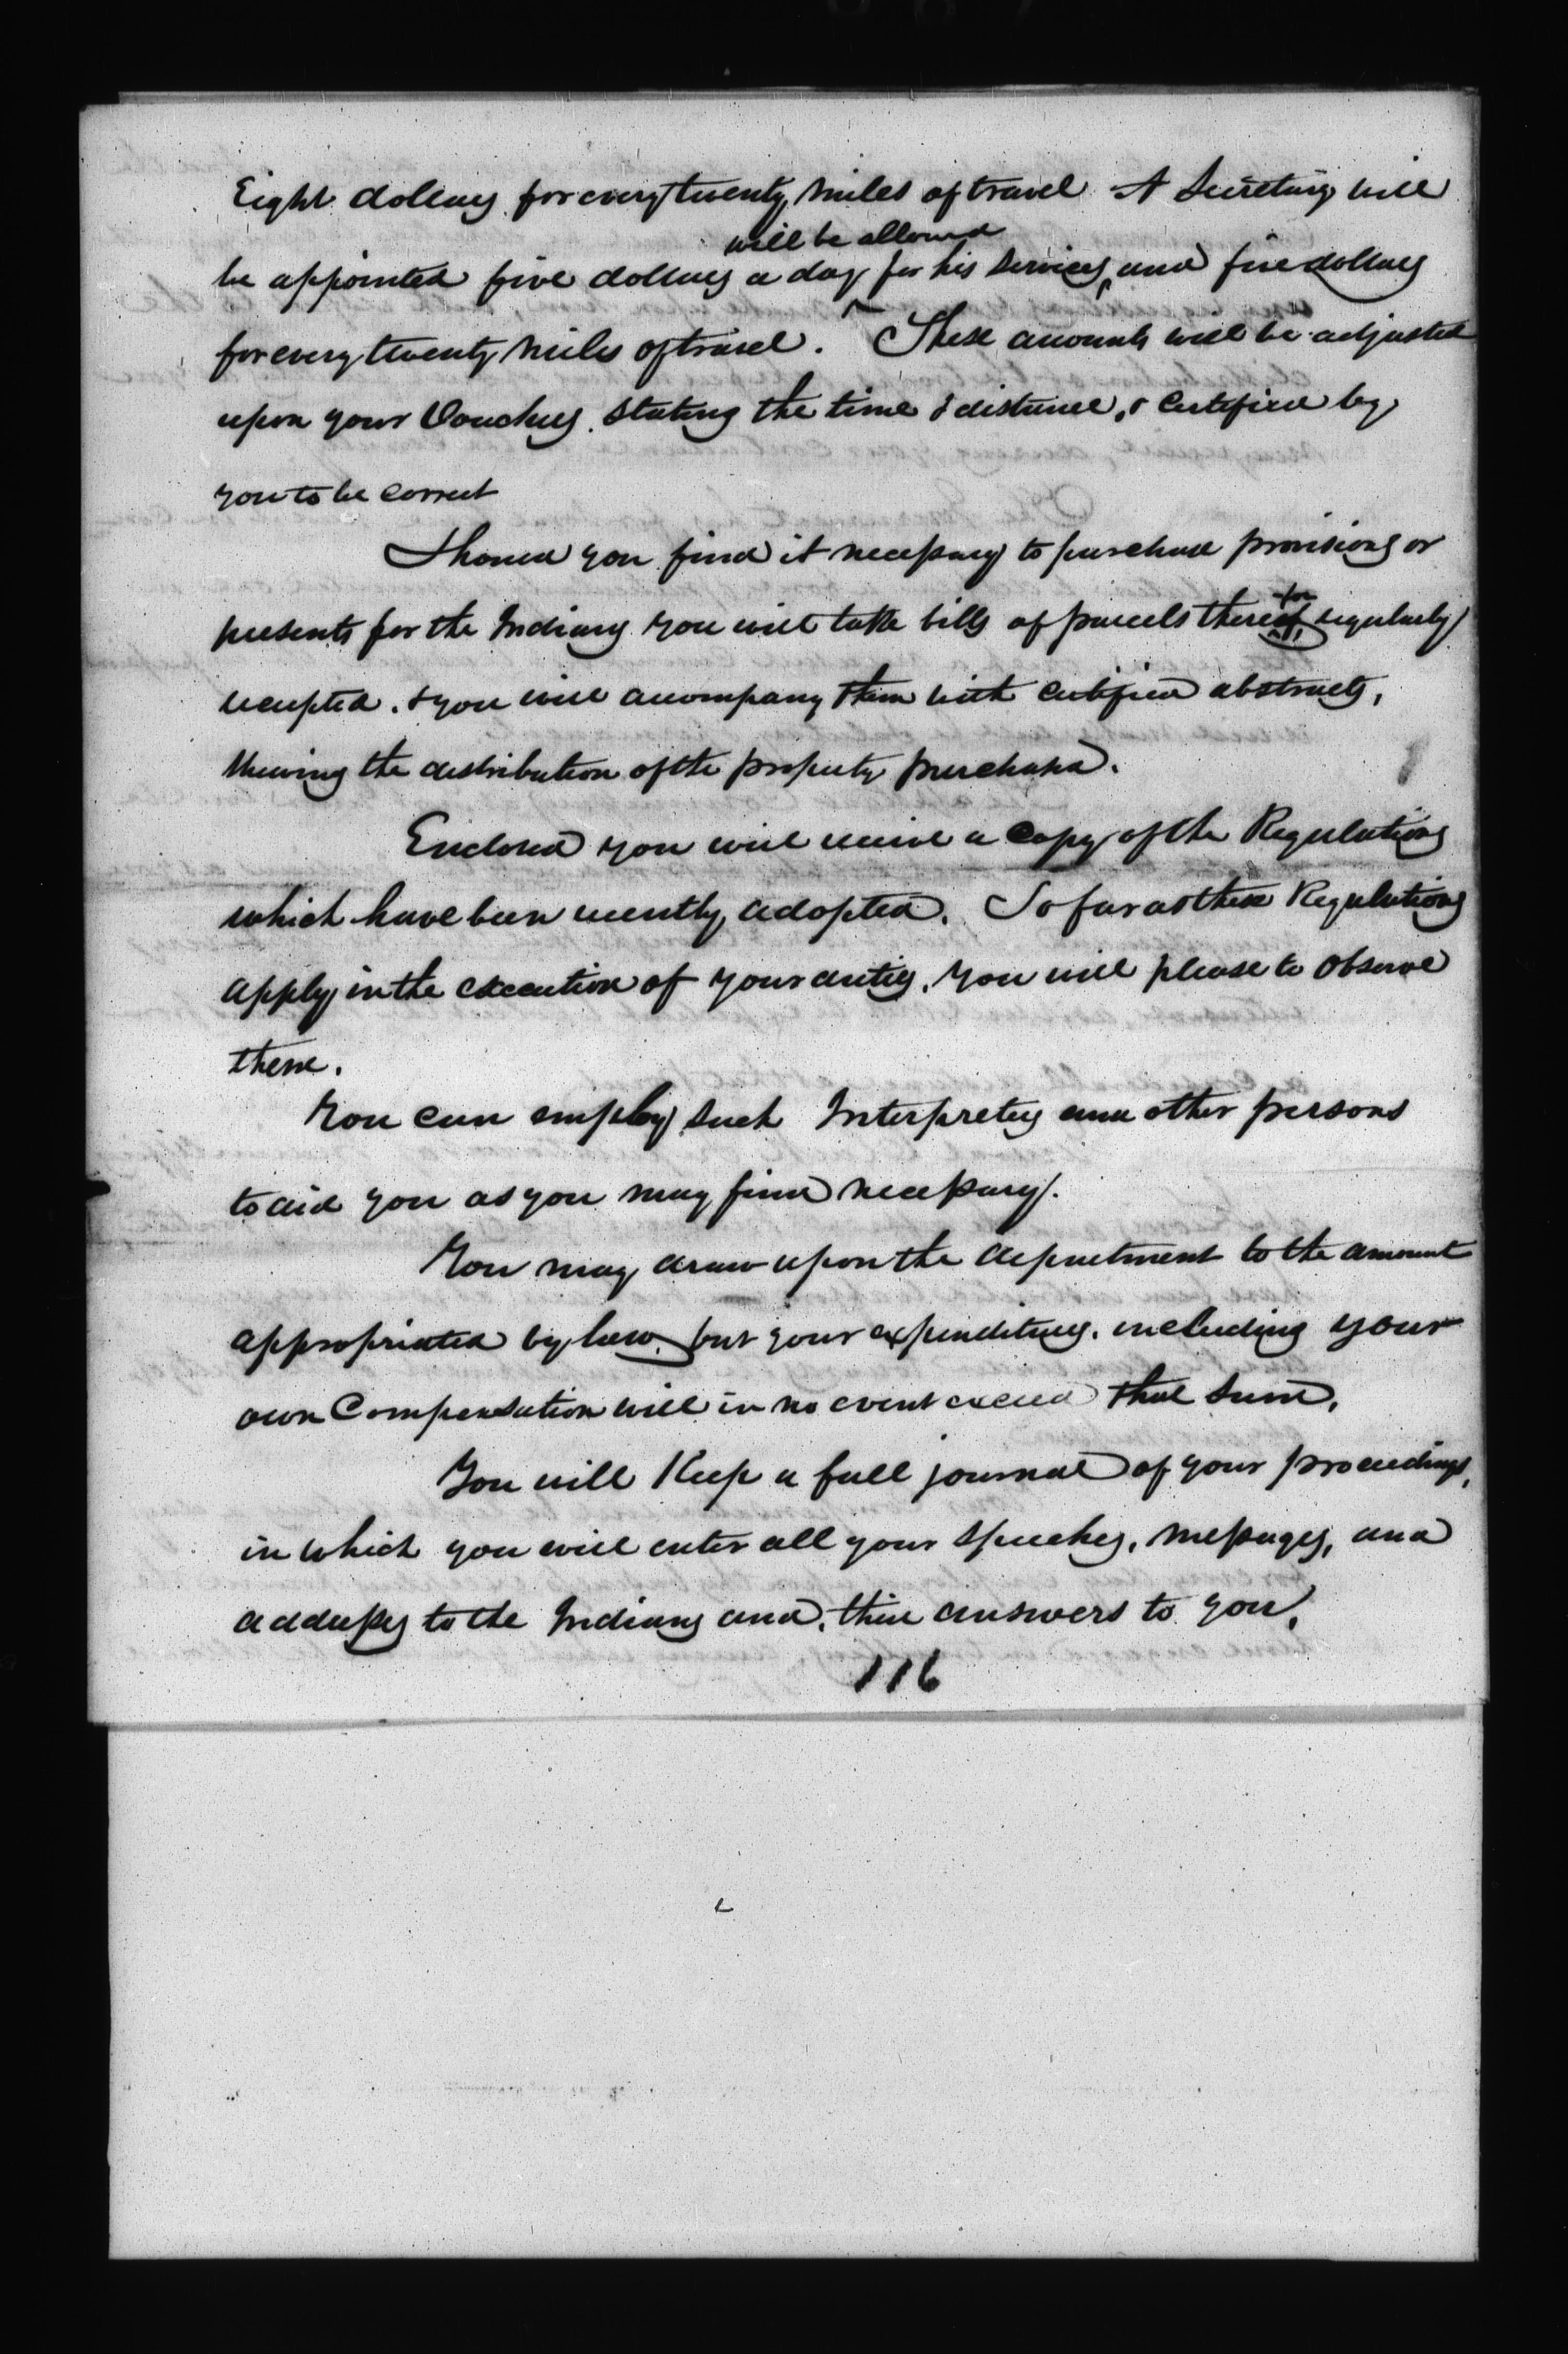 Eight dollars for every twenty miles of travel A Secretary will
will be allowed
be appointed five dollars a day for his services, and five dollars
for every twenty miles of travel. These accounts will be adjusted
upon your Vouchers, stating the time & distance, & certified by
you to be correct
Should you find it necessary to purchase provisions or
presents for the Indians you will take bills of parcels therefor regularly
receipted, & you will accompany them with certified abstracts,
shewing the distribution of the property purchased.
Enclosed you will receive a Copy of the Regulations
which have been recently adopted. So far as these Regulations
apply in the execution of your duties, you will please to observe
them.
You can employ such Interpreters and other persons
to aid you as you may find necessary.
You may draw upon the department to the amount
appropriated by law, but your expenditures, including your
own Compensation will in no event exceed that sum.
You will Keep a full journal of your proceedings,
in which you will enter all your speeches, messages, and
addresses to the Indians and, their answers to you.
116